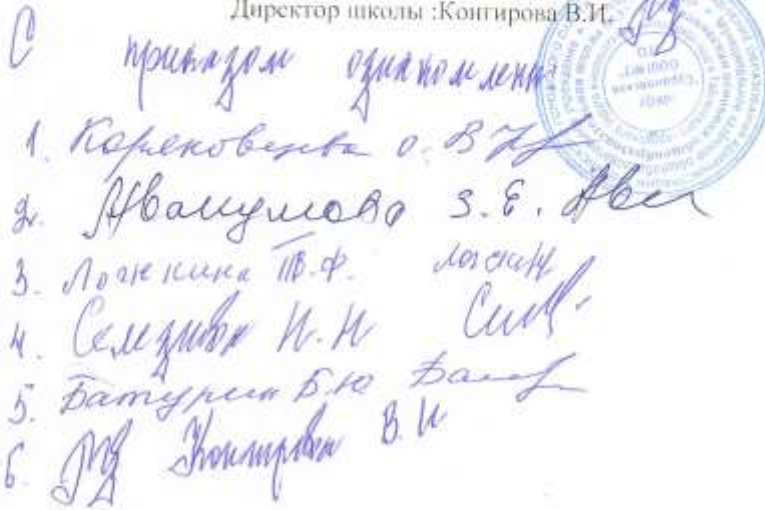 Директор школы :Конгирова В.И.
С приказом ознакомлены
1. Коряковцева О. В
2. Авакумова З. Е. Авак
3. Ложкина Т.Ф. Ложкин
4. Селезнева Н. Н
5. Батурин Б.Ю
6. Конгирова В. И